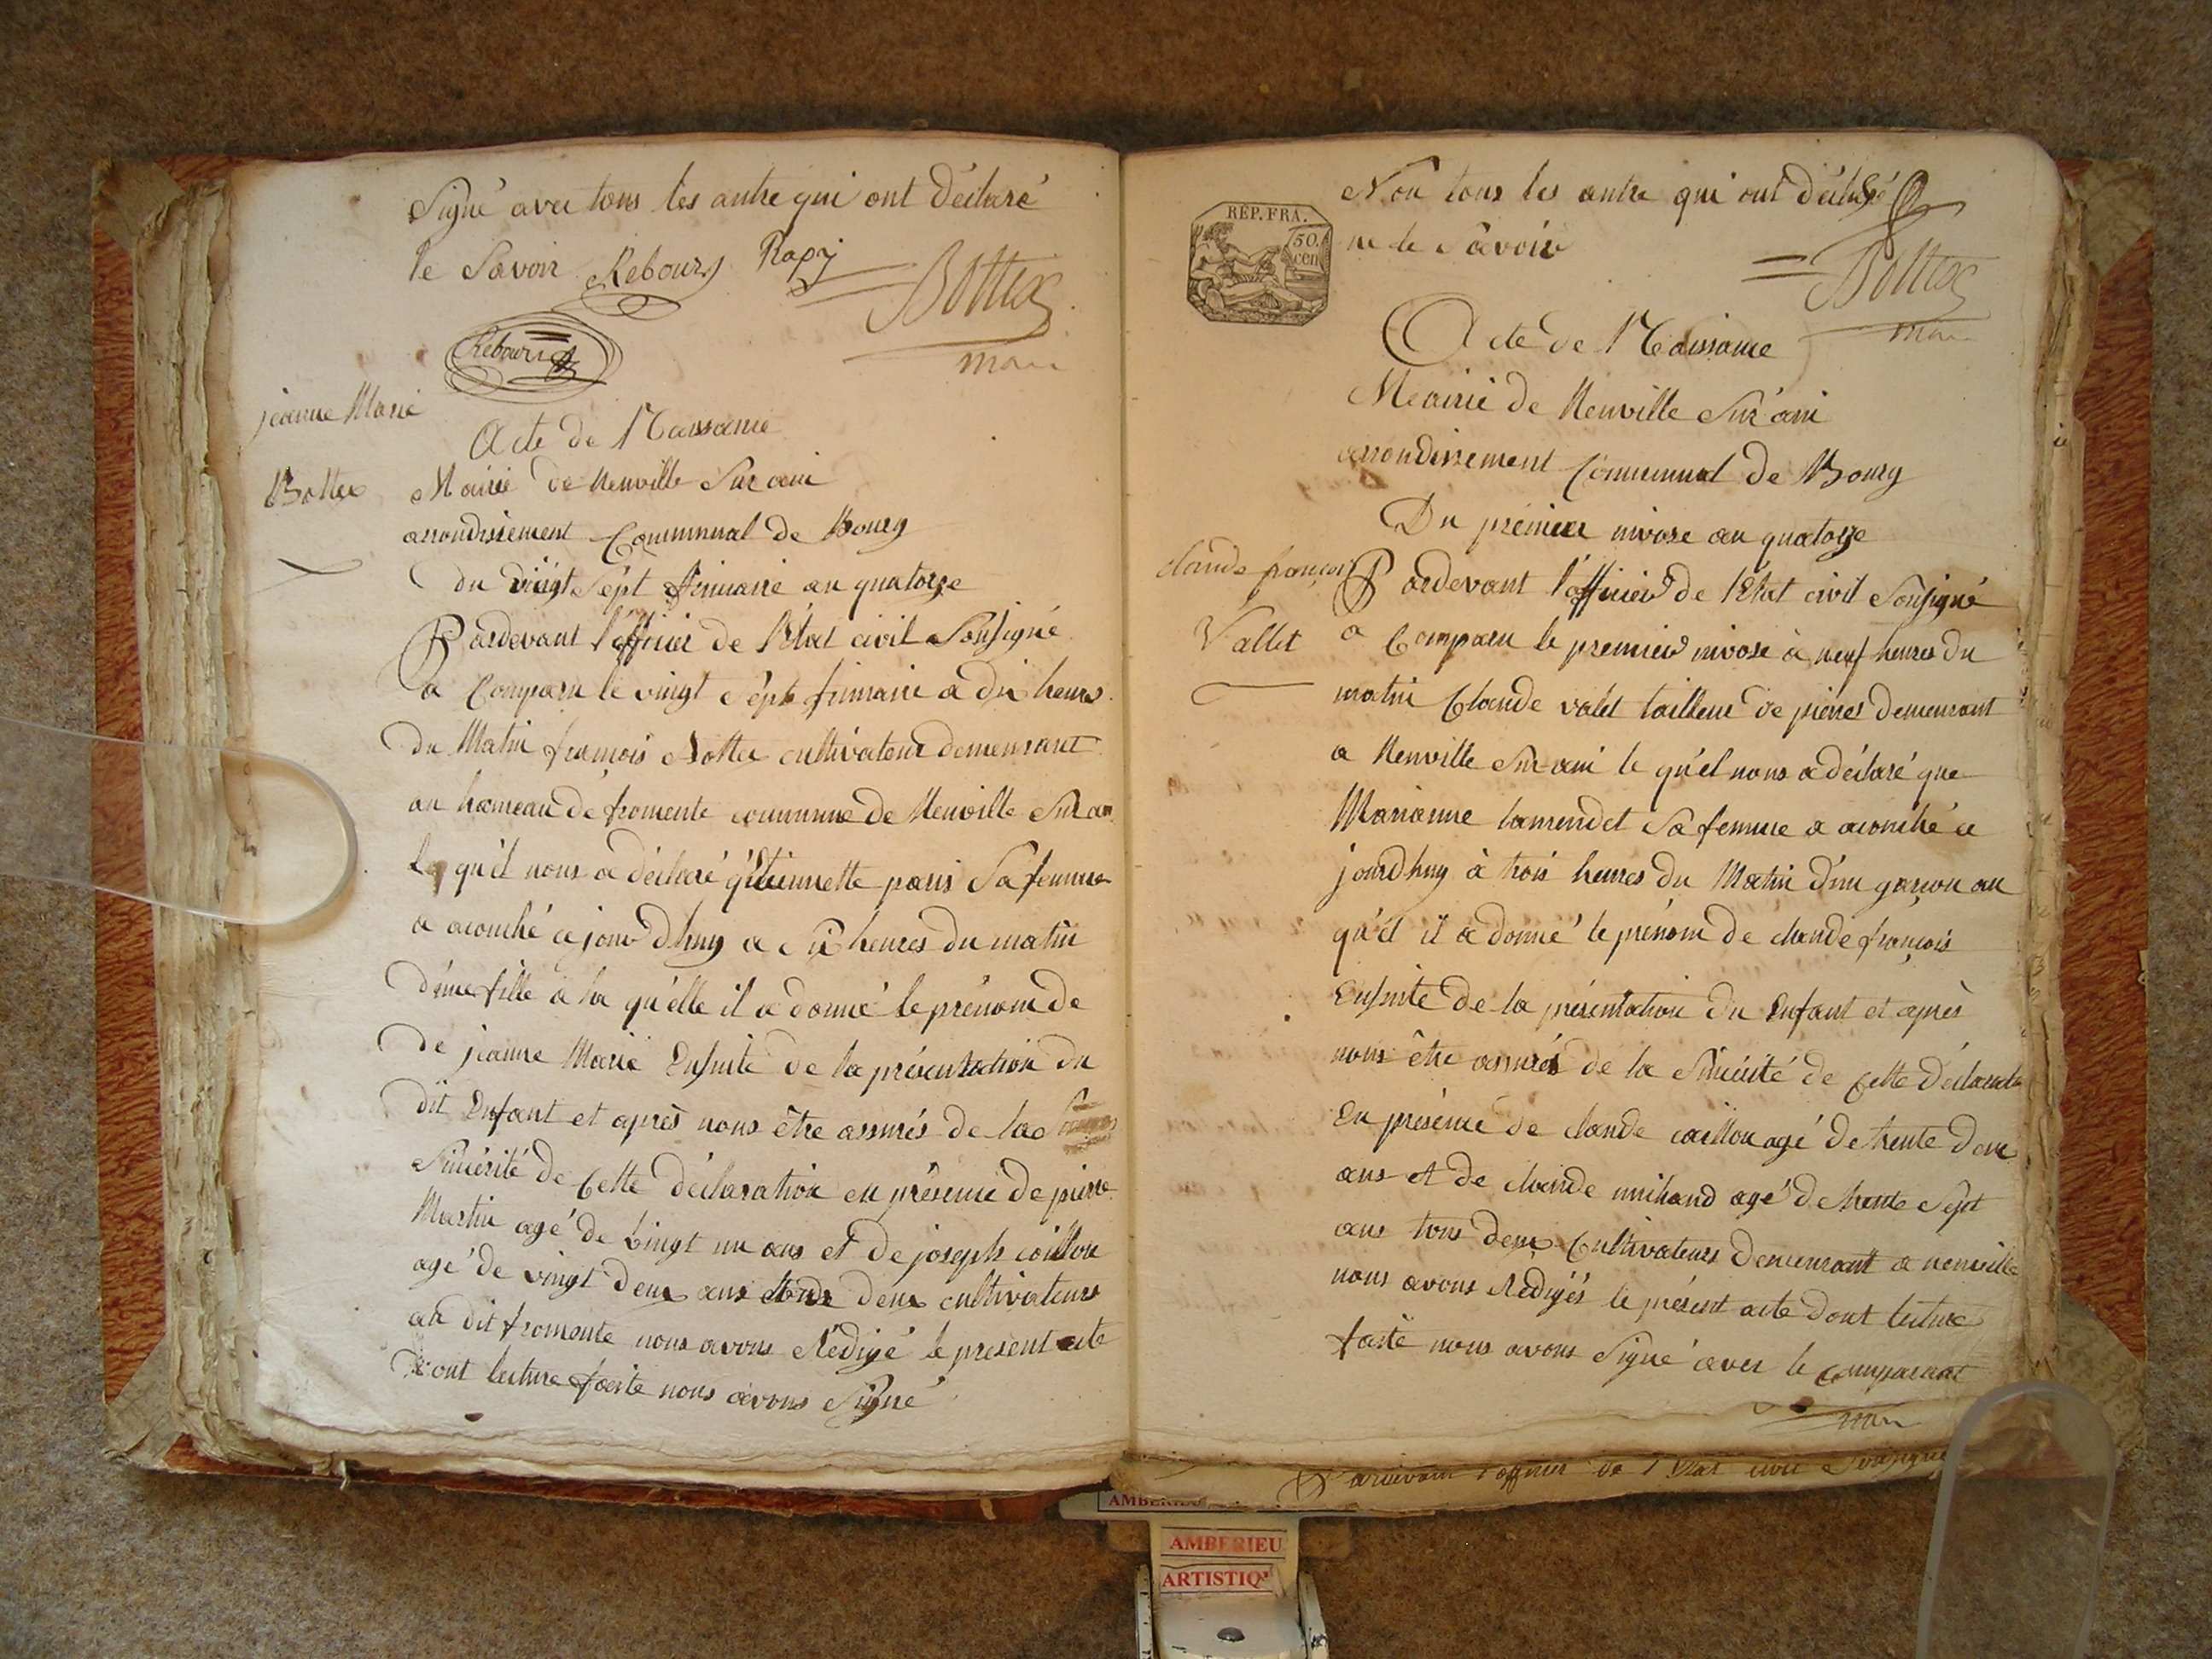 Signé avec tous les autre qui ont déclaré
le Savoir Rebours Rapy Bottex
Rebours
maire
jeanne Marie
Bottex
Acte de Naissance
Mairie de Neuville Sur ain
arrondissement Communal de Bourg
du vingt Sept frimaire an quatorze
Pardevant l'officier de l'Etat civil Sousigné
a Comparu le vingt Sept frimaire a dix heures
du Matin françois Bottex cultivateur demeurant
au hameau de fromente commune de Neuville Sur ain
le qu'el nous a déclaré q'étiennette paris Sa femme
a acouché ce jourd'huy a Six heures du matin
d'une fille a la qu'elle il a donné le prénom de
de jeanne Marie Ensuite de la présentation du
dit Enfant et après nous être assurés de la
Sincérité de Cette déclaration en présence de pierre
Martin agé de vingt un ans et de joseph caillon
agé de vingt deux ans deux cultivateurs
au dit fromente nous avons Rédigé le present acte
dont lecture faite nous avons Signé
Non tous les autre qui ont déclaré
ne le Savoir
REP. FRA.
50.
cen
Bottex
maire
Acte de Naissance
Meairie de Neuville Sur ain
arrondissement Communal de Bourg
Du prémier nivose an quatorze
claude françois
Vallet
Pardevant l'officier de l'Etat civil Sousigné
a Comparu le premier nivose à neuf heures du
matin Claude valet tailleur de pierres demeurant
a Neuville Sur ain le qu'el nous a déclaré que
Marianne Sa femme a acouché ce
jourdhuy à trois heures du Matin d'un garçon au
qu'el il a donné le prénom de claude françois
Ensuite de la présentation du Enfant et après
nous être assurés de la Sincérité de Cette
En présence de claude caillon agé de trente deux
ans et de claude agé de trente Sept
ans tous deux Cultivateurs demeurant a neuville
nous avons Rédigés le présent acte dont lecture
faite nous avons Signé avec le Comparant
maire
Pardevant l'officier de l'Etat civil Sousigné
AMBERIEU
AMBERIEU
ARTISTIQ